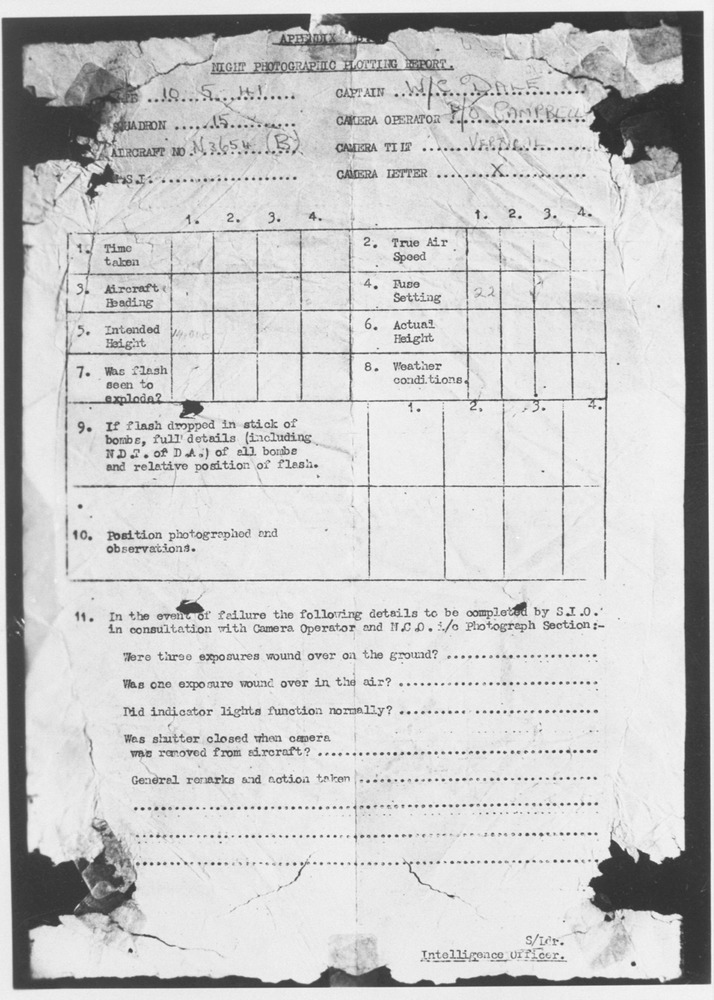 APPENDIX
NIGHT PHOTOGRAPHIC PLOTTING REPORT.
10.5.41 CAPTAIN W/C DALE
SQUADRON 15 CAMERA OPERATOR P/O CAMPBELL
AIRCRAFT NO N3654 (B) CAMERA TILT VERTICAL
CAMERA LETTER X
1. 2. 3. 4. 1. 2. 3. 4.
1. Time taken 2. True Air Speed
3. Aircraft Heading 4. Fuse Setting 22
5. Intended Height 6. Actual Height
7. Was flash seen to explode? 8. Weather conditions.
1. 2. 3. 4.
9. If flash dropped in stick of
bombs, full details (including
N.D.T. of D.A.) of all bombs
and relative position of flash.
10. Position photographed and
observations.
11. In the event of failure the following details to be completed by S.I.O.
in consultation with Camera Operator and N.C.O. i/c Photograph Section:-
Were three exposures wound over on the ground?
Was one exposure wound over in the air?
Did indicator lights function normally?
Was shutter closed when camera
was removed from aircraft?
General remarks and action taken
S/Ldr.
Intelligence Officer.